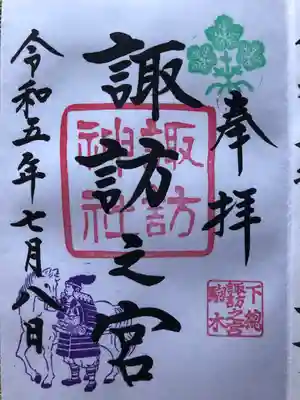 奉拝
下總
諏訪之宮
駒木
諏訪之宮
諏訪
神社
令和五年七月八日